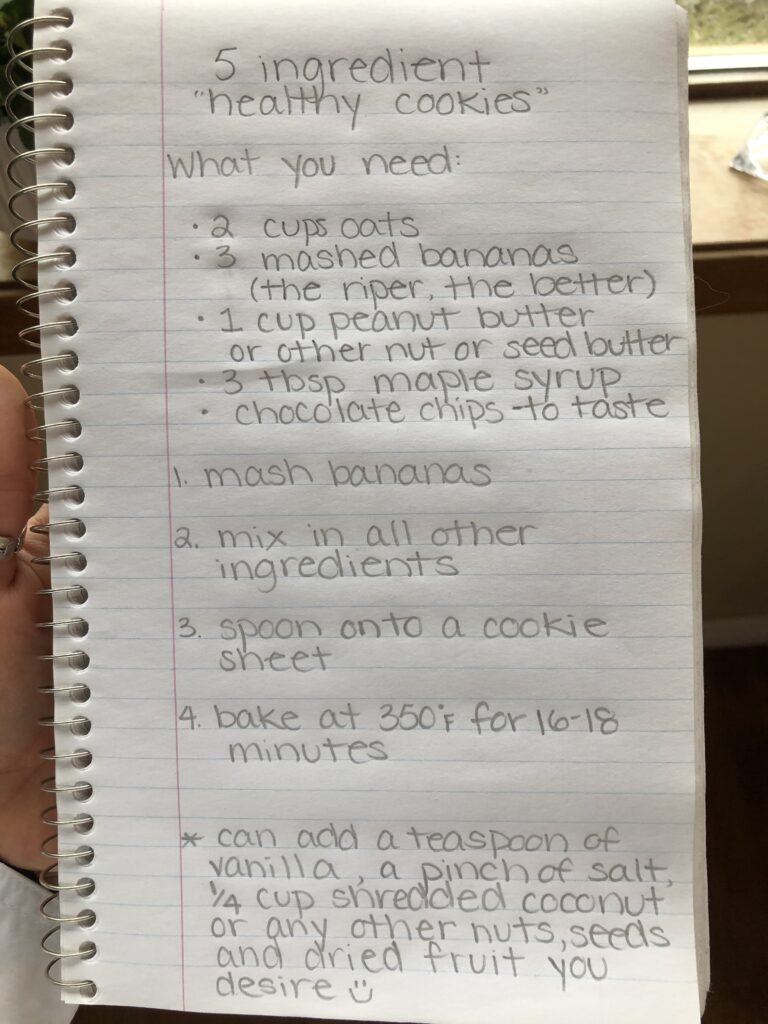 5 ingredient
"healthy cookies"
What you need:
· 2 cups oats
· 3 mashed bananas
(the riper, the better)
· 1 cup peanut butter
or other nut or seed butter
· 3 tbsp maple syrup
· chocolate chips - to taste
1. mash bananas
2. mix in all other
ingredients
3. spoon onto a cookie
sheet
4. bake at 350°F for 16-18
minutes
* can add a teaspoon of
vanilla, a pinch of salt,
1/4 cup shredded coconut
or any other nuts, seeds
and dried fruit you
desire ☺